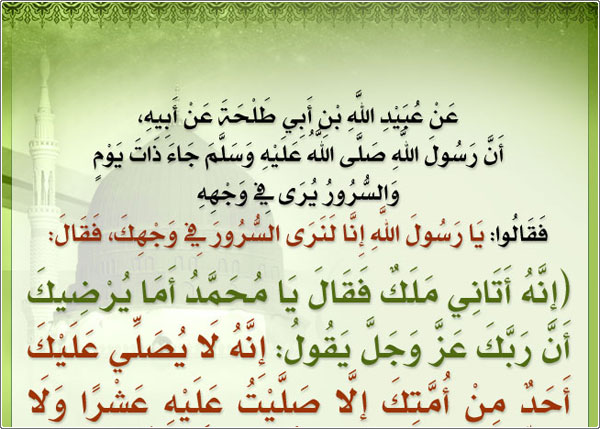 عَنْ عُبَيْدِ اللَّهِ بْنِ أَبِي طَلْحَةَ عَنْ أَبِيهِ،
أَنَّ رَسُولَ اللَّهِ صَلَّى اللَّهُ عَلَيْهِ وَسَلَّمَ جَاءَ ذَاتَ يَوْمٍ
وَالسُّرُورُ يُرَى فِي وَجْهِهِ
فَقَالُوا: يَا رَسُولَ اللَّهِ إِنَّا لَنَرَى السُّرُورَ فِي وَجْهِكَ، فَقَالَ:
(إِنَّهُ أَتَانِي مَلَكٌ فَقَالَ يَا مُحَمَّدُ أَمَا يُرْضِيكَ
أَنَّ رَبَّكَ عَزَّ وَجَلَّ يَقُولُ: إِنَّهُ لَا يُصَلِّي عَلَيْكَ
أَحَدٌ مِنْ أُمَّتِكَ إِلَّا صَلَّيْتُ عَلَيْهِ عَشْرًا وَلَا